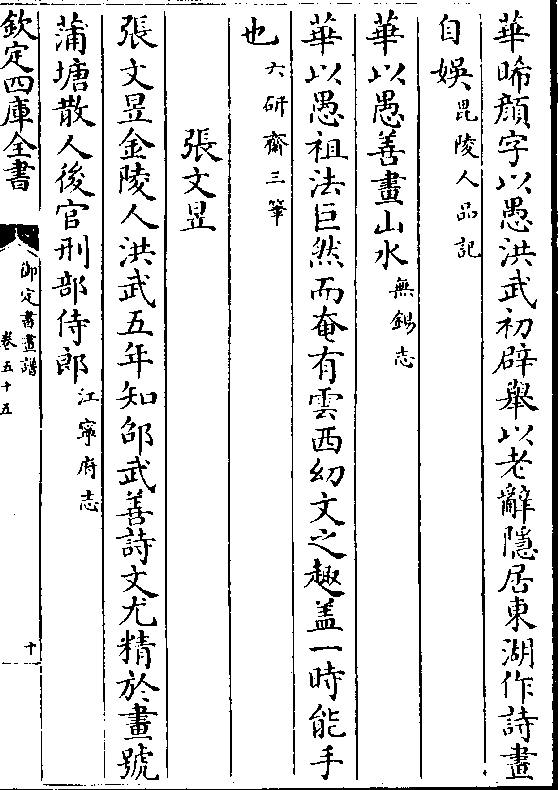 華晞顔字以愚洪武初辟舉以老辭隱居東湖作詩畫
自娯毘陵人品記
華以愚善畫山水無錫志
華以愚祖法巨然而奄有雲西幼文之趣盖一時能手
也六研齋三筆
張文昱
張文昱金陵人洪武五年知邵武善詩文尤精於畫號
蒲塘散人後官刑部侍郎江寧府志
欽定四庫全書
御定書畫譜
卷五十五
十